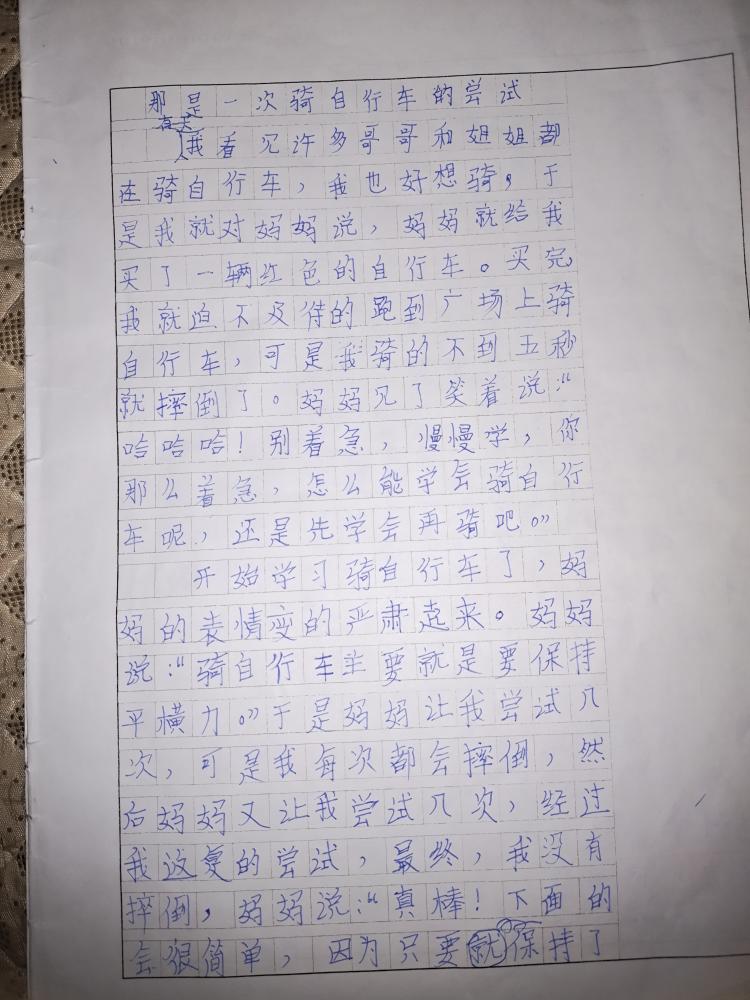 那是一次骑自行车的尝试
有天我看见许多哥哥和姐姐都
在骑自行车，我也好想骑，于
是我就对妈妈说，妈妈就给我
买了一辆红色的自行车。买完，
我就迫不及待的跑到广场上骑
自行车，可是我骑的不到五秒
就摔倒了。妈妈见了笑着说：“
哈哈哈！别着急，慢慢学，你
那么着急，怎么能学会骑自行
车呢，还是先学会再骑吧。”
开始学习骑自行车了，妈
妈的表情变的严肃起来。妈妈
说：“骑自行车主要就是要保持
平横力。”于是妈妈让我尝试几
次，可是我每次都会摔倒，然
后妈妈又让我尝试几次，经过
我这复的尝试，最终，我没有
摔倒，妈妈说：“真棒！下面的
会很简单，因为只要就保持了